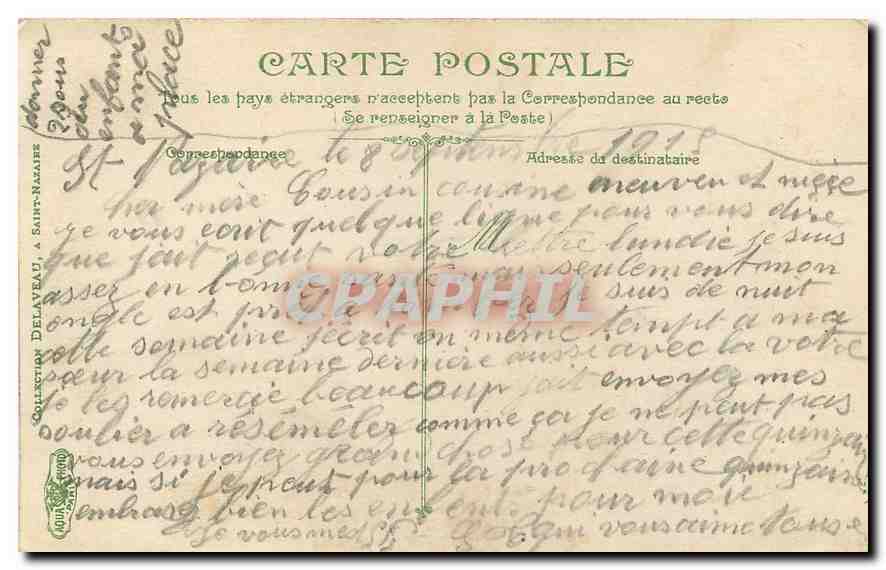 donner
2 sous
au
enfant
a ma
place
CARTE POSTALE
Tous les pays étrangers n'acceptent pas la Correspondance au recto
(Se renseigner à la Poste)
Correspondance
Adresse du destinataire
St Nazaire le 8 Septembre 191
Cousin cousine neuveu et nièce
je vous ecrit quelque ligne pour vous dire
que jait reçut votre lettre lundie je suis
assez en bonne seulement mon
ongle est je suis de nuit
cette semaine jécrit en même tempt a ma
sœur la semaine dernière aussi avec la votre
je les remercie beaucoup jait envoyez mes
soulier a résémêler comme ça je ne peut pas
vous envoyez grand chose pour cette quinzaine
mais si je peut pour la prochaine quinzaine
embrasse bien les enfant pour moie
Je vous qui vous aime tous
COLLECTION DELAVEAU, A SAINT-NAZAIRE
AQUA PHOTO
PARIS
CPAPHIL